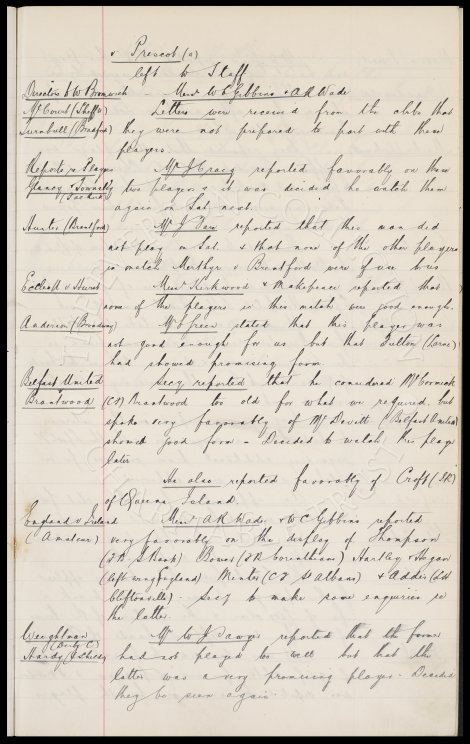 v Prescot (a)
left to Staff
Directors to W Bromwich - Messrs W C Gibbins & A R Wade
McCourt (Sheff W) Letters were received from the clubs that
Turnbull (Bradford) they were not prepared to part with these
players.
Reports re Players Mr J Craig reported favorably on these
Glancy & Donnelly two players & it was decided he watch them
again on Sat. next.
(Brentford) Mr J reported that this man did
not play on Sat. & that none of the other players
in match Merthyr v Brentford were of use to us
v Hurst Messrs Kirkwood & Makepeace reported that
none of the players in this match were good enough.
Anderson (Broadway) Mr Green stated that this player was
not good enough for us but that Fullon (Larne)
had showed promising form.
Belfast United Secy reported that he considered McCormick
Brantwood (CF) Brantwood too old for what we required, but
spoke very favorably of McDevitt (Belfast United)
showed good form - Decided to watch his play
later
He also reported favorably of Croft (IR)
of Queens Island.
England v Ireland Messrs A R Wade & W C Gibbins reported
(Amateur) very favorably on the display of Thompson
Bower (Corinthians) Hartley & Hogan
(left wing England) Minter (CF St Albans) & Addis (LH
Cliftonville). Secy to make some enquiries re
the latter.
Weightman Mr W J Sawyer reported that the former
(Derby C)
Hardy had not played too well but that the
latter was a very promising player. Decided
they be seen again.